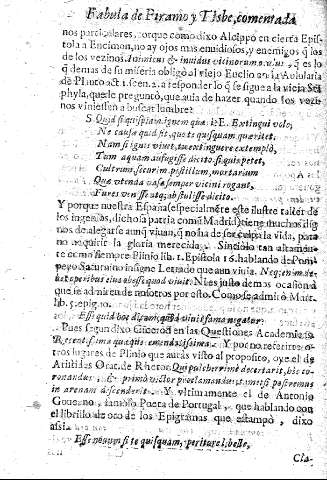 Fabula de Piramo y Tisbe, comentada
nos particulares, porque como dixo Alciapo en cierta Epis-
tola a Encimon, no ay ojos mas enuidiosos, y enemigos q̃ los
de los vezinos. Inimicus & inuidus vicinorum oculus, q̃ es lo
q̃ demas de su miseria obligò al viejo Euclio en la Aulularia
de Plauto act. 1. scen. 2. a responder lo q̃ se sigue a la vieja Sta-
phyla, que le preguntò, que auia de hazer quando los vezi-
nos viniessen a buscar lumbre?
S. Quid si quispiam ignem quærat? E. Extingui volo,
Ne causæ quid sit, que te quisquam queritet.
Nam si ignis viuet, tu extinguere extemplò,
Tum aquam aufugisse dicito. si quis petet,
Cultrum, securim, pistillum, mortarium
Quæ vtenda vasa semper vicini rogant,
Fures venisse atq; abstulisse dicito.
Y porque nuestra España (especialmẽte este ilustre taller de
los ingenios, dichosa patria como Madrid) tiene muchos dig-
nos de alegarse aunq̃ viuan, q̃ no ha de ser culpa la vida, para
no adquirir la gloria merecida. Sintiolo tan altamẽn-
te como siempre Plinio lib. 1. Epistola 16. hablando de Pom-
peyo Saturnino insigne Letrado que aun viuia. Neq; enim de-
bet operibus eius obesse quod viuit. Ni es justo demos ocasion a
que se admiren de nosotros por esto. Como se admirò Mart.
lib. 5. epig. 10.
Esse quid hoc dicam, quod viuis fama negatur.
Pues segun dixo Ciceron en las Questiones Academicas
Recentissima quæque emendatissima. Y por no referir o-
tros lugares de Plinio que auràs visto al proposito, oye el de
Aristides Orat. de Rhetor. Qui pulcherrimè decertarit, hic co-
ronandus, & primò victor proclamandus, tametsi postremus
in arenam descenderit. Y vltimamente el de Antonio
Gouerno, famoso Poeta de Portugal, que hablando con
el librillo de oro de los Epigramas que estampò, dixo
assi
Esse nouum si te quisquam, periture libelle,
Cla-